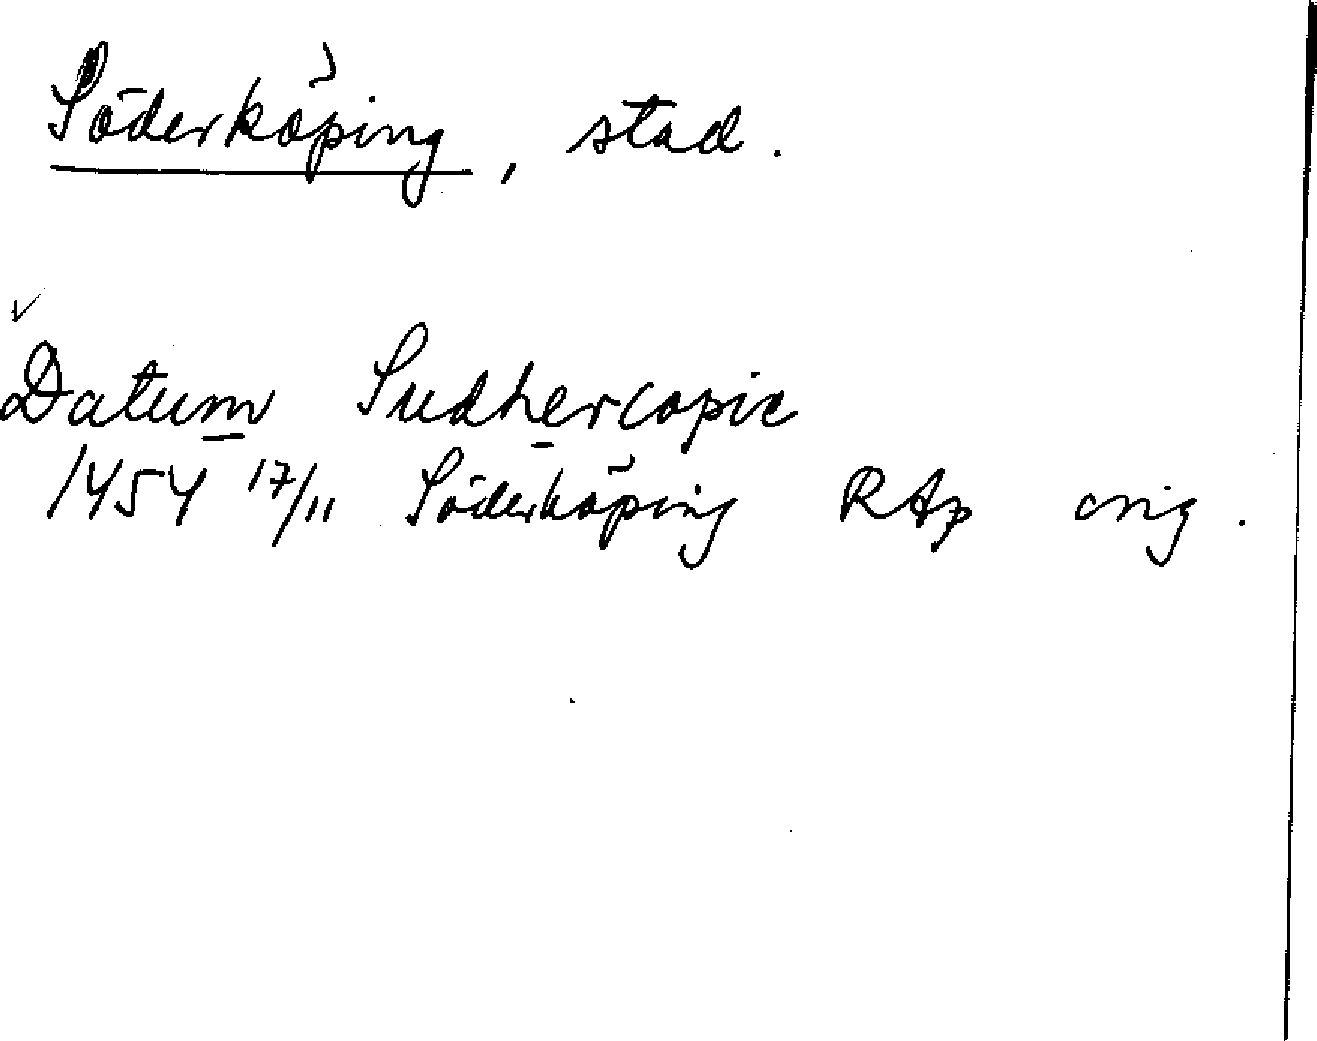 Söderköping, stad.
Datum Sudhercopie
1454 17/11 Söderköping RAp orig.